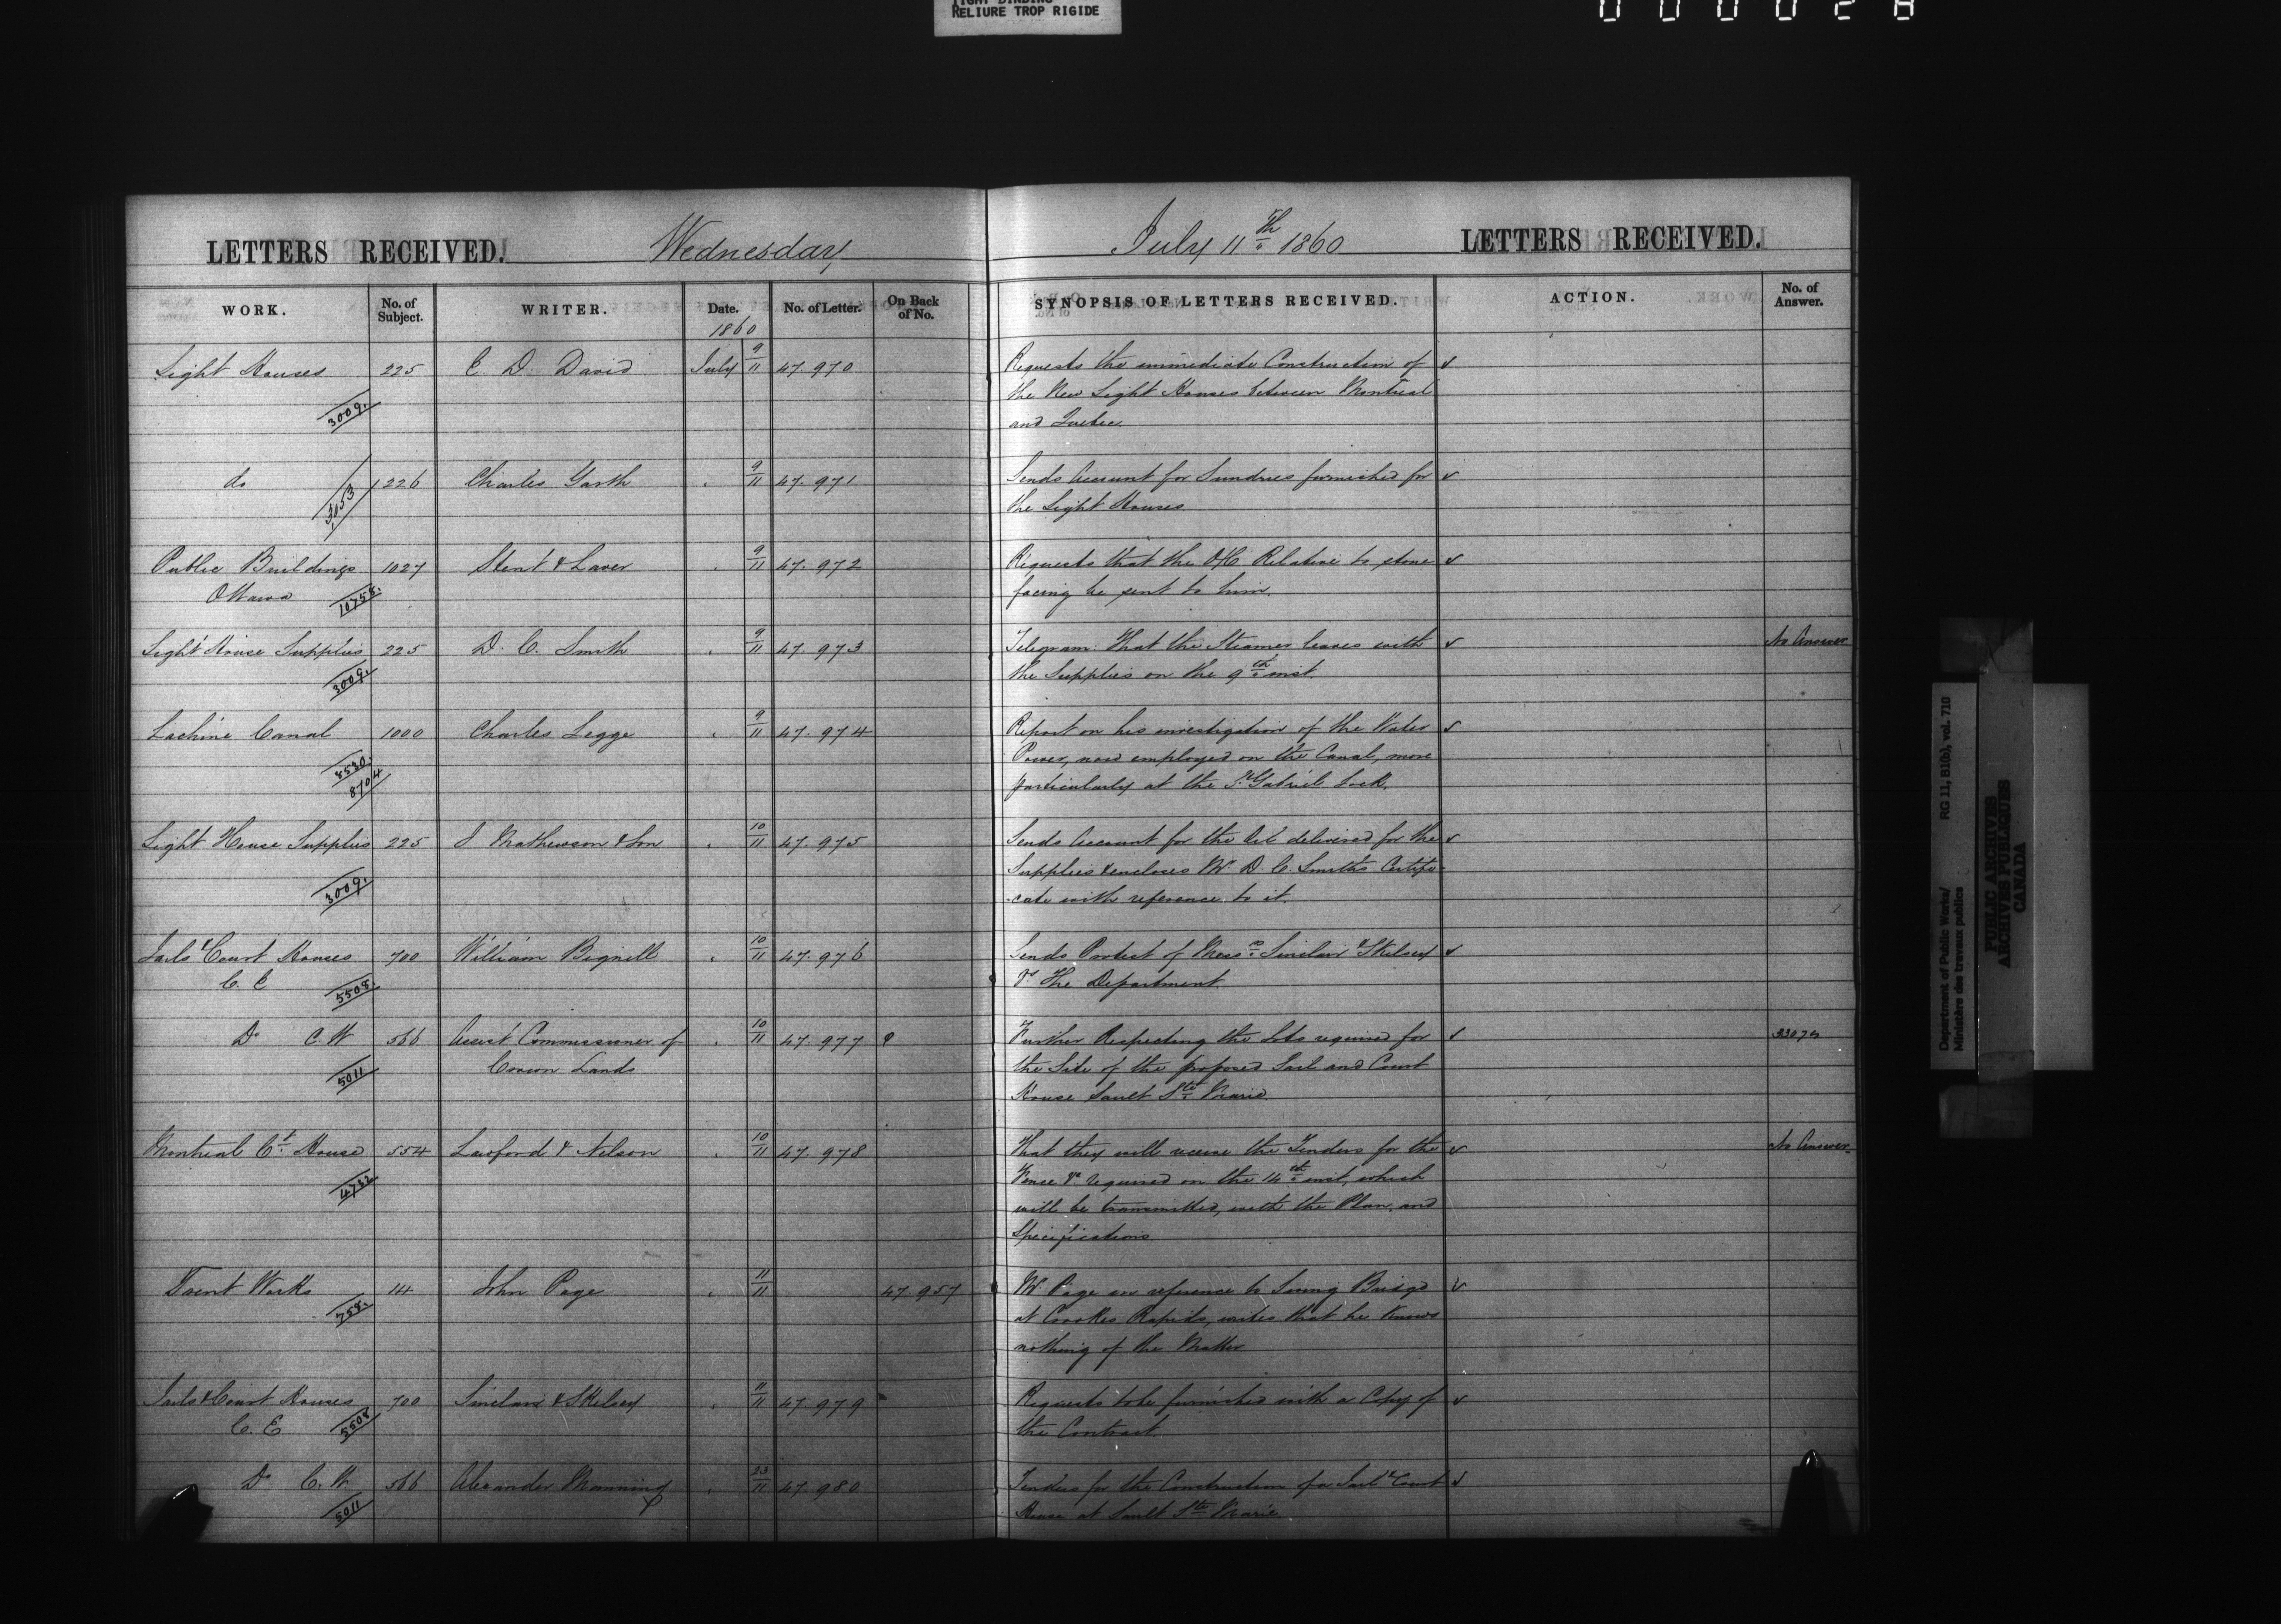 TIGHT BINDING
RELIURE TROP RIGIDE
000028
LETTERS RECEIVED. Wednesday July 11th 1860 LETTERS RECEIVED.
WORK. No. of Subject. WRITER. Date. No. of Letter. On Back of No. SYNOPSIS OF LETTERS RECEIVED. ACTION. No. of Answer.
1860
Light Houses 225 E. D. David July 9/11 47.970 Requests the immediate Construction of
3009. the New Light Houses between Montreal
and Quebec.
do 226 Charles Garth 9/11 47.971 Sends Account for Sundries furnished for
3053 the Light Houses
Public Buildings 1027 Stent & Laver 9/11 47.972 Requests that the O/C Relative to stone
Ottawa 10758. facing be sent to him.
Light House Supplies 225 D. C. Smith 9/11 47.973 Telegram. That the Steamer leaves with No Answer
3009. the Supplies on the 9th inst.
Lachine Canal 1000 Charles Legge 9/11 47.974 Report on his investigation of the Water
8580. Power, now employed on the Canal, more
8704 particularly at the St Gabriel Lock.
Light House Supplies 225 J Mathewson & Son 10/11 47.975 Sends Account for the Oil delivered for the
Supplies & encloses Mr D. C. Smith's Certifi-
3009. cate with reference to it.
Jails & Court Houses 700 William Bignell 10/11 47.976 Sends Protest of Messrs Sinclair & Skelsey
C. E 5508. Vs The Department.
Do C. W 566 Assist Commissioner of 10/11 47.977 Further Respecting the Lots required for
5011 Crown Lands the Site of the proposed Jail and Court
House Sault Ste Marie.
Montreal Ct House 554 Lawford & Nelson 10/11 47.978 That they will receive the Tenders for the No Answer
4732 Fence &c required on the 14th inst, which
will be transmitted, with the Plan, and
Specifications
Trent Works 114 John Page 11/11 47 957 Mr Page in reference to Swing Bridge
758. at Crookes Rapids, writes that he Knows
nothing of the Matter
Jails & Court Houses 700 Sinclair & Skelsey 11/11 47.979 Requests to be furnished with a Copy of
C. E 5508 the Contract.
Do C. W. 566 Alexander Manning 23/11 47.980 Tenders for the Construction of a Jail & Court
5011 House at Sault Ste Marie
Department of Public Works/ RG 11, B1(b), vol. 710
Ministère des travaux publics
PUBLIC ARCHIVES
ARCHIVES PUBLIQUES
CANADA